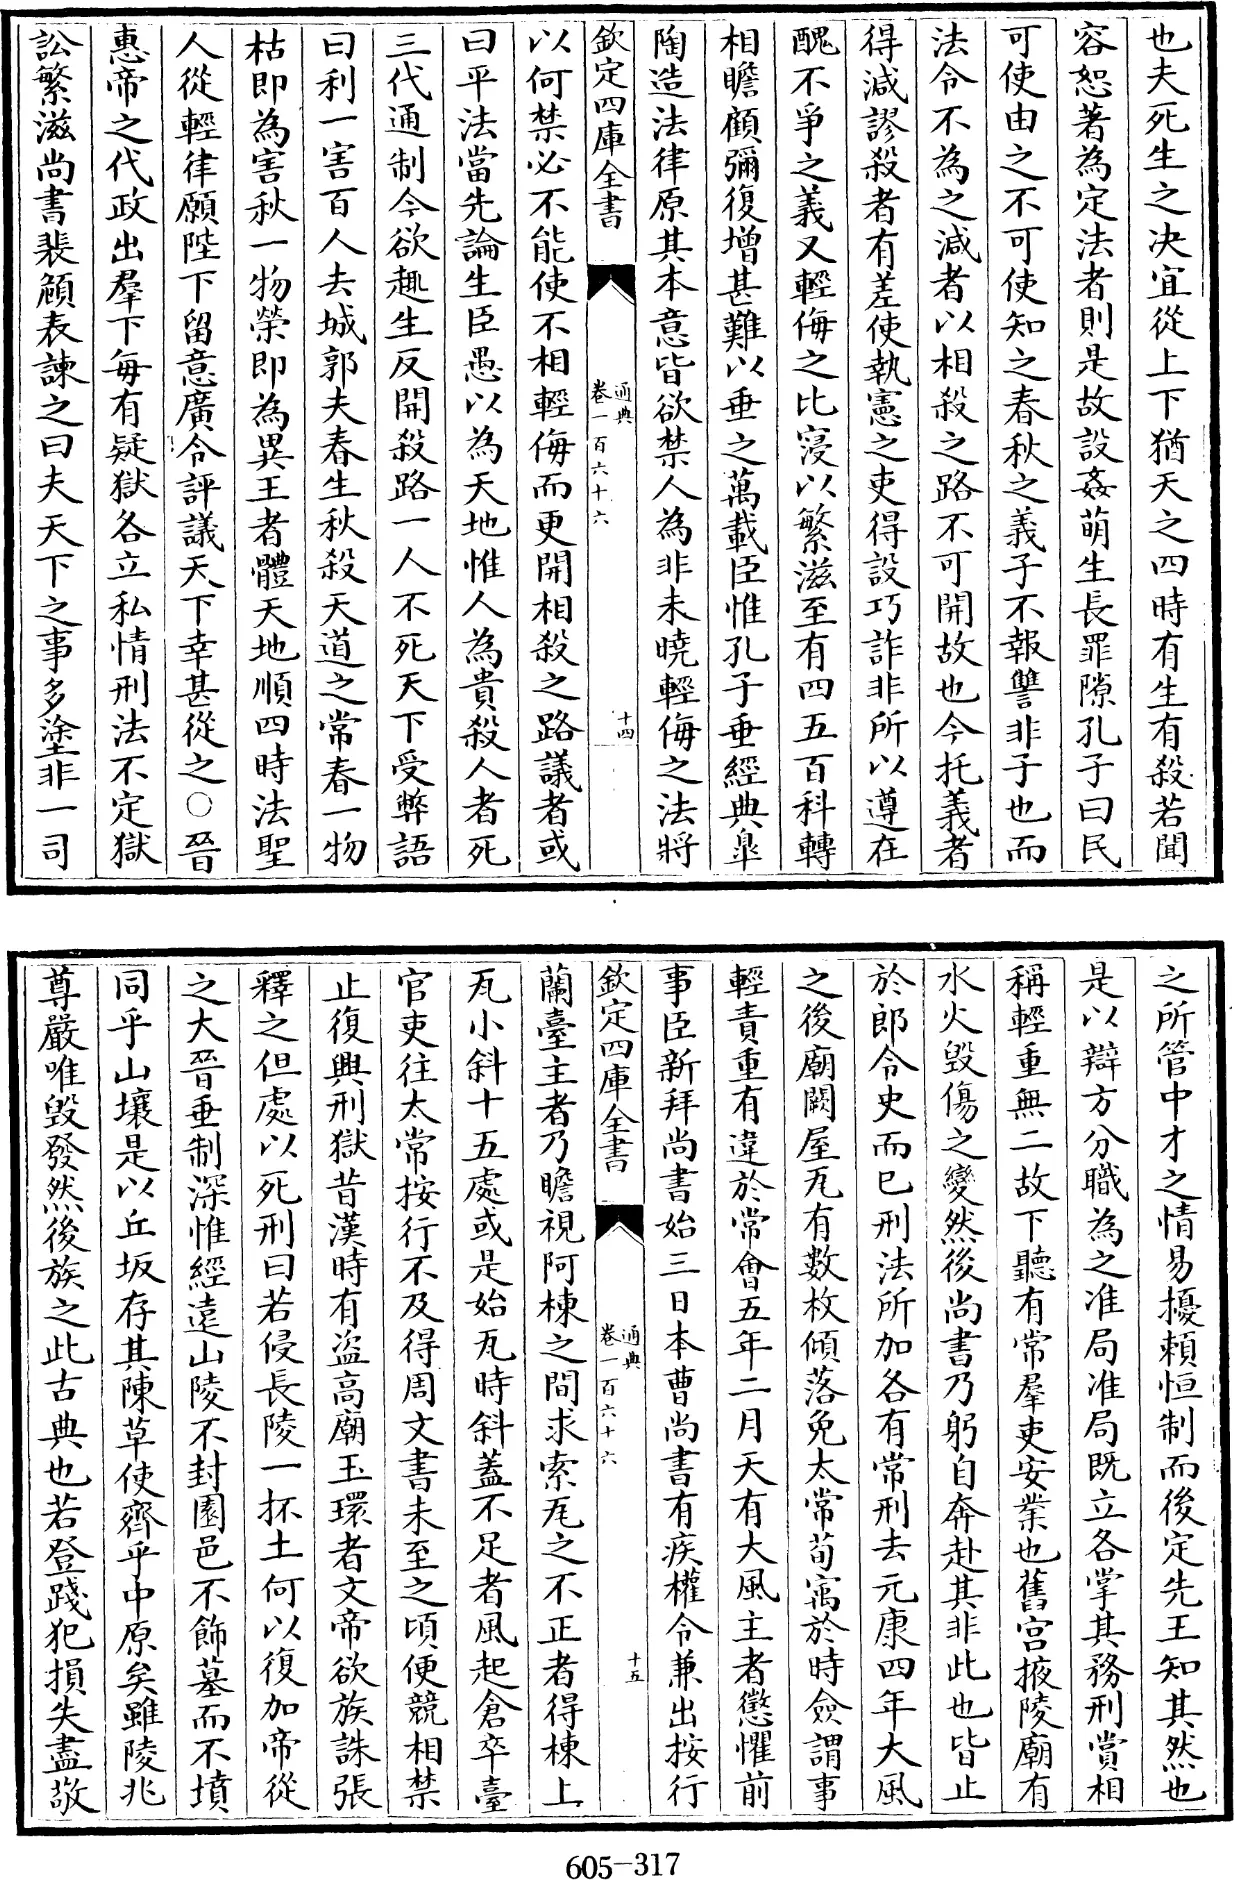 也夫死生之决宜從上下猶天之四時有生有殺若聞
容恕著為定法者則是故設姦萌生長罪隙孔子曰民
可使由之不可使知之春秋之義子不報讐非子也而
法令不為之減者以相殺之路不可開故也今托義者
得減謬殺者有差使執憲之吏得設巧詐非所以遵在
醜不爭之義又輕侮之比寖以繁滋至有四五百科轉
相瞻顧彌復增甚難以垂之萬載臣惟孔子垂經典臯
陶造法律原其本意皆欲禁人為非未曉輕侮之法將
欽定四庫全書
通典
卷一百六十六
十四
以何禁必不能使不相輕侮而更開相殺之路議者或
曰平法當先論生臣愚以為天地惟人為貴殺人者死
三代通制今欲趣生反開殺路一人不死天下受弊語
曰利一害百人去城郭夫春生秋殺天道之常春一物
枯即為害秋一物榮即為異王者體天地順四時法聖
人從輕律願陛下留意廣令評議天下幸甚從之○晉
惠帝之代政出羣下每有疑獄各立私情刑法不定獄
訟繁滋尚書裴頠表諫之曰夫天下之事多塗非一司
之所管中才之情易擾賴恒制而後定先王知其然也
是以辯方分職為之准局准局既立各掌其務刑賞相
稱輕重無二故下聽有常羣吏安業也舊宫掖陵廟有
水火毁傷之變然後尚書乃躬自奔赴其非此也皆止
於郎令史而已刑法所加各有常刑去元康四年大風
之後廟闕屋瓦有數枚傾落免太常荀㝢於時僉謂事
輕責重有違於常會五年二月天有大風主者懲懼前
事臣新拜尚書始三日本曹尚書有疾權令兼出按行
欽定四庫全書
通典
卷一百六十六
十五
蘭臺主者乃瞻視阿棟之間求索瓦之不正者得棟上
瓦小斜十五處或是始瓦時斜蓋不足者風起倉卒臺
官吏往太常按行不及得周文書未至之頃便競相禁
止復興刑獄昔漢時有盗高廟玉環者文帝欲族誅張
釋之但處以死刑曰若侵長陵一抔土何以復加帝從
之大晉垂制深惟經遠山陵不封園邑不飾墓而不墳
同乎山壤是以丘坂存其陳草使齊乎中原矣雖陵兆
尊嚴唯毁發然後族之此古典也若登踐犯損失盡敬
605-317